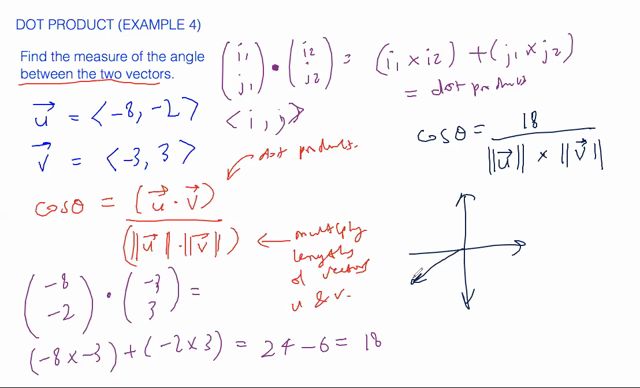 DOT PRODUCT (EXAMPLE 4)
Find the measure of the angle
between the two vectors.
(i₁ j₁) • (i₂ j₂) = (i₁ × i₂) + (j₁ × j₂)
= dot product
<i, j>
u⃗ = <-8, -2>
v⃗ = <-3, 3>
dot product.
cosθ = (u⃗ · v⃗) / (||u⃗|| · ||v⃗||)
multiply
lengths
of vectors
u & v.
cosθ = 18 / ||u⃗|| × ||v⃗||
(-8 -2) • (-3 3) =
(-8 × -3) + (-2 × 3) = 24 - 6 = 18